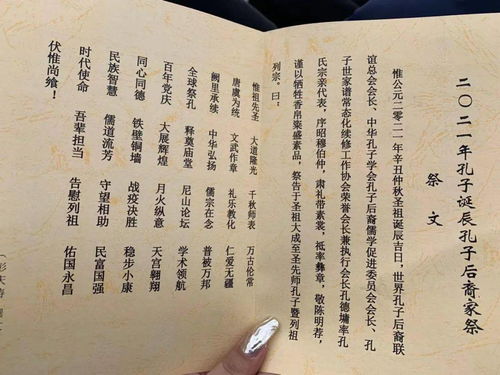 二〇二一年孔子诞辰孔子后裔家祭
祭文
惟公元二〇二一年辛丑仲秋圣祖诞辰吉日，世界孔子后裔联
谊总会会长、中华孔子学会孔子后裔儒学促进委员会会长、孔
子世家谱常态化续修工作协会荣誉会长兼执行会长孔德墉率孔
氏宗亲代表，序昭穆伯仲，肃礼带素裳，祗率彝章，敬陈明荐，
谨以牺牲香帛粢盛素品，祭告于圣祖大成至圣先师孔子暨列祖
列宗。曰：
惟祖先圣 大道隆光 千秋师表 万古伦常
唐虞为统 文武作章 礼乐教化 仁爱无疆
阙里承续 中华弘扬 儒宗在念 普被万邦
全球祭孔 释奠庙堂 尼山论坛 学术领航
百年党庆 大展辉煌 月火纵意 天宫翱翔
同心同德 铁壁铜墙 战疫决胜 稳步小康
民族智慧 儒道流芳 守望相助 民富国强
时代使命 吾辈担当 告慰列祖 佑国永昌
伏惟尚飨！